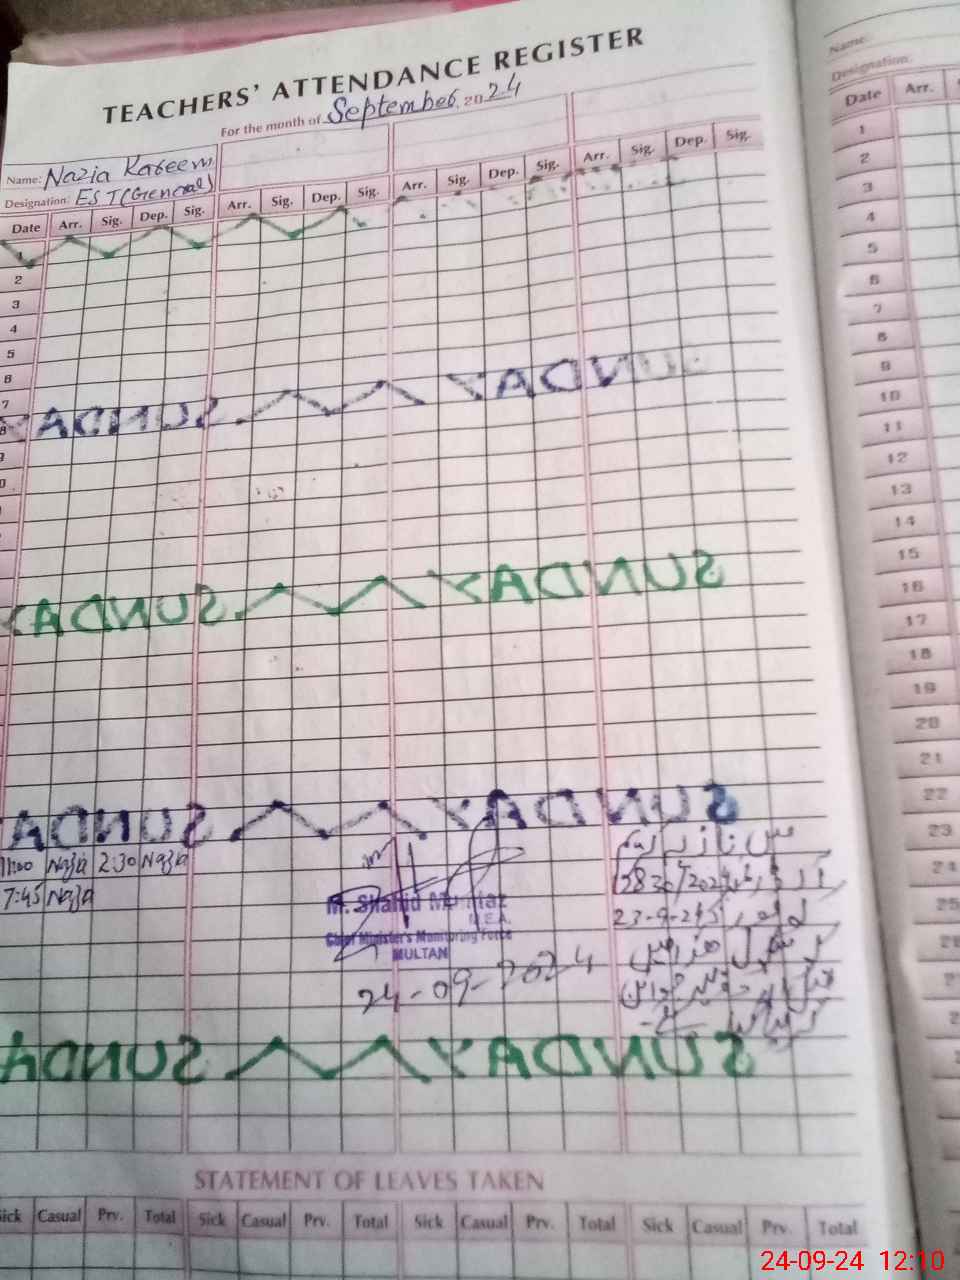 TEACHERS' ATTENDANCE REGISTER
For the month of September 2024
Name: Nazia Kareem
Designation: EST (General)
Date Arr. Sig. Dep. Sig. Arr. Sig. Dep. Sig. Arr. Sig. Dep. Sig. Arr. Sig. Dep. Sig.
1
2
3
4
5
6
7
8 SUNDAY SUNDAY
SUNDAY SUNDAY
SUNDAY SUNDAY
11:00 Nazia 2:30 Nazia
7:45 Nazia
M. Shahid Mumtaz
M.E.A.
Chief Minister's Monitoring Force
MULTAN
24-09-2024
23-9-24
SUNDAY SUNDAY
STATEMENT OF LEAVES TAKEN
Sick Casual Prv. Total Sick Casual Prv. Total Sick Casual Prv. Total Sick Casual Prv. Total
Name:
Designation:
Date Arr.
1
2
3
4
5
6
7
8
9
10
11
12
13
14
15
16
17
18
19
20
21
22
23
24
25
24-09-24 12:10